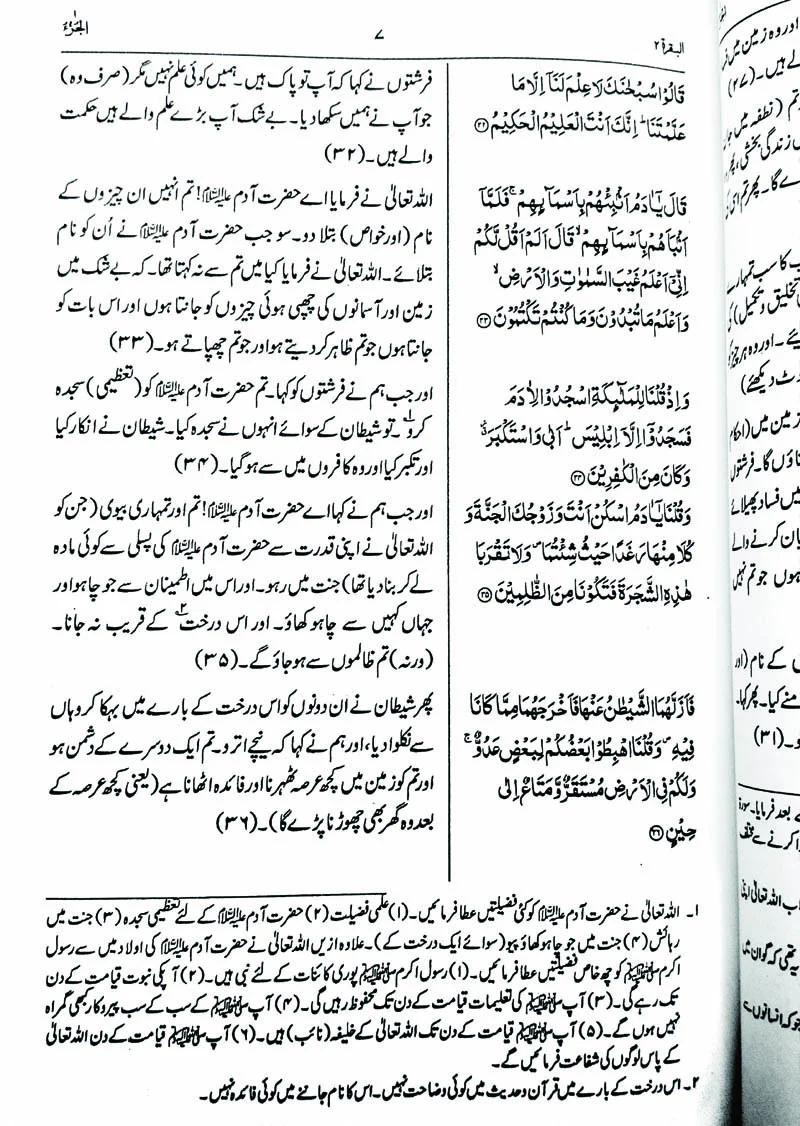 البقرة ۲
۷
الجزء ۱
قَالُوْا سُبْحٰنَكَ لَا عِلْمَ لَنَاۤ اِلَّا مَا
عَلَّمْتَنَا ؕ اِنَّكَ اَنْتَ الْعَلِيْمُ الْحَكِيْمُ ﴿۳۲﴾
قَالَ يٰۤاٰدَمُ اَنْۢبِئْهُمْ بِاَسْمَآئِهِمْ ۚ فَلَمَّاۤ
اَنْۢبَاَهُمْ بِاَسْمَآئِهِمْ ۙ قَالَ اَلَمْ اَقُلْ لَّكُمْ
اِنِّيْۤ اَعْلَمُ غَيْبَ السَّمٰوٰتِ وَالْاَرْضِ ۙ
وَاَعْلَمُ مَا تُبْدُوْنَ وَمَا كُنْتُمْ تَكْتُمُوْنَ ﴿۳۳﴾
وَاِذْ قُلْنَا لِلْمَلٰٓئِكَةِ اسْجُدُوْا لِاٰدَمَ
فَسَجَدُوْۤا اِلَّاۤ اِبْلِيْسَ ؕ اَبٰى وَاسْتَكْبَرَ ۫ۗ
وَكَانَ مِنَ الْكٰفِرِيْنَ ﴿۳۴﴾
وَقُلْنَا يٰۤاٰدَمُ اسْكُنْ اَنْتَ وَزَوْجُكَ الْجَنَّةَ وَ
كُلَا مِنْهَا رَغَدًا حَيْثُ شِئْتُمَا ۪ وَلَا تَقْرَبَا
هٰذِهِ الشَّجَرَةَ فَتَكُوْنَا مِنَ الظّٰلِمِيْنَ ﴿۳۵﴾
فَاَزَلَّهُمَا الشَّيْطٰنُ عَنْهَا فَاَخْرَجَهُمَا مِمَّا كَانَا
فِيْهِ ۪ وَقُلْنَا اهْبِطُوْا بَعْضُكُمْ لِبَعْضٍ عَدُوٌّ ۚ
وَلَكُمْ فِي الْاَرْضِ مُسْتَقَرٌّ وَّمَتَاعٌ اِلٰى
حِيْنٍ ﴿۳۶﴾
فرشتوں نے کہا کہ آپ تو پاک ہیں۔ ہمیں کوئی علم نہیں مگر (صرف وہ)
جو آپ نے ہمیں سکھا دیا۔ بے شک آپ بڑے علم والے ہیں حکمت
والے ہیں۔ (۳۲)
اللہ تعالیٰ نے فرمایا اے حضرت آدم علیہ السلام! تم انہیں ان چیزوں کے
نام (اور خواص) بتلا دو۔ سو جب حضرت آدم علیہ السلام نے اُن کو نام
بتلائے۔ اللہ تعالیٰ نے فرمایا کیا میں تم سے نہ کہتا تھا۔ کہ بے شک میں
زمین اور آسمانوں کی چھپی ہوئی چیزوں کو جانتا ہوں اور اس بات کو
جانتا ہوں جو تم ظاہر کر دیتے ہو اور جو تم چھپاتے ہو۔ (۳۳)
اور جب ہم نے فرشتوں کو کہا۔ تم حضرت آدم علیہ السلام کو (تعظیمی) سجدہ
کرو۱۔ تو شیطان کے سوائے انہوں نے سجدہ کیا۔ شیطان نے انکار کیا
اور تکبر کیا اور وہ کافروں میں سے ہو گیا۔ (۳۴)
اور جب ہم نے کہا اے حضرت آدم علیہ السلام! تم اور تمہاری بیوی (جن کو
اللہ تعالیٰ نے اپنی قدرت سے حضرت آدم علیہ السلام کی پسلی سے کوئی مادہ
لے کر بنا دیا تھا) جنت میں رہو۔ اور اس میں اطمینان سے جو چاہو اور
جہاں کہیں سے چاہو کھاؤ۔ اور اس درخت۲ کے قریب نہ جانا۔
(ورنہ) تم ظالموں سے ہو جاؤ گے۔ (۳۵)
پھر شیطان نے ان دونوں کو اس درخت کے بارے میں بہکا کر وہاں
سے نکلوا دیا، اور ہم نے کہا کہ نیچے اترو۔ تم ایک دوسرے کے دشمن ہو
اور تم کو زمین میں کچھ عرصہ ٹھہرنا اور فائدہ اٹھانا ہے (یعنی کچھ عرصہ کے
بعد وہ گھر بھی چھوڑنا پڑے گا)۔ (۳۶)
۱۔ اللہ تعالیٰ نے حضرت آدم علیہ السلام کو کئی فضیلتیں عطا فرمائیں۔ (۱) علمی فضیلت (۲) حضرت آدم علیہ السلام کے لئے تعظیمی سجدہ (۳) جنت میں
رہائش (۴) جنت میں جو چاہو کھاؤ پیو (سوائے ایک درخت کے)۔ علاوہ ازیں اللہ تعالیٰ نے حضرت آدم علیہ السلام کی اولاد میں سے رسول
اکرم ﷺ کو چھ خاص فضیلتیں عطا فرمائیں۔ (۱) رسول اکرم ﷺ پوری کائنات کے لئے نبی ہیں۔ (۲) آپ کی نبوت قیامت کے دن
تک رہے گی۔ (۳) آپ ﷺ کی تعلیمات قیامت کے دن تک محفوظ رہیں گی۔ (۴) آپ ﷺ کے سب کے سب پیروکار بھی گمراہ
نہیں ہوں گے۔ (۵) آپ ﷺ قیامت کے دن تک اللہ تعالیٰ کے خلیفہ (نائب) ہیں۔ (۶) آپ ﷺ قیامت کے دن اللہ تعالیٰ
کے پاس لوگوں کی شفاعت فرمائیں گے۔
۲۔ اس درخت کے بارے میں قرآن و حدیث میں کوئی وضاحت نہیں۔ اس کا نام جاننے میں کوئی فائدہ نہیں۔